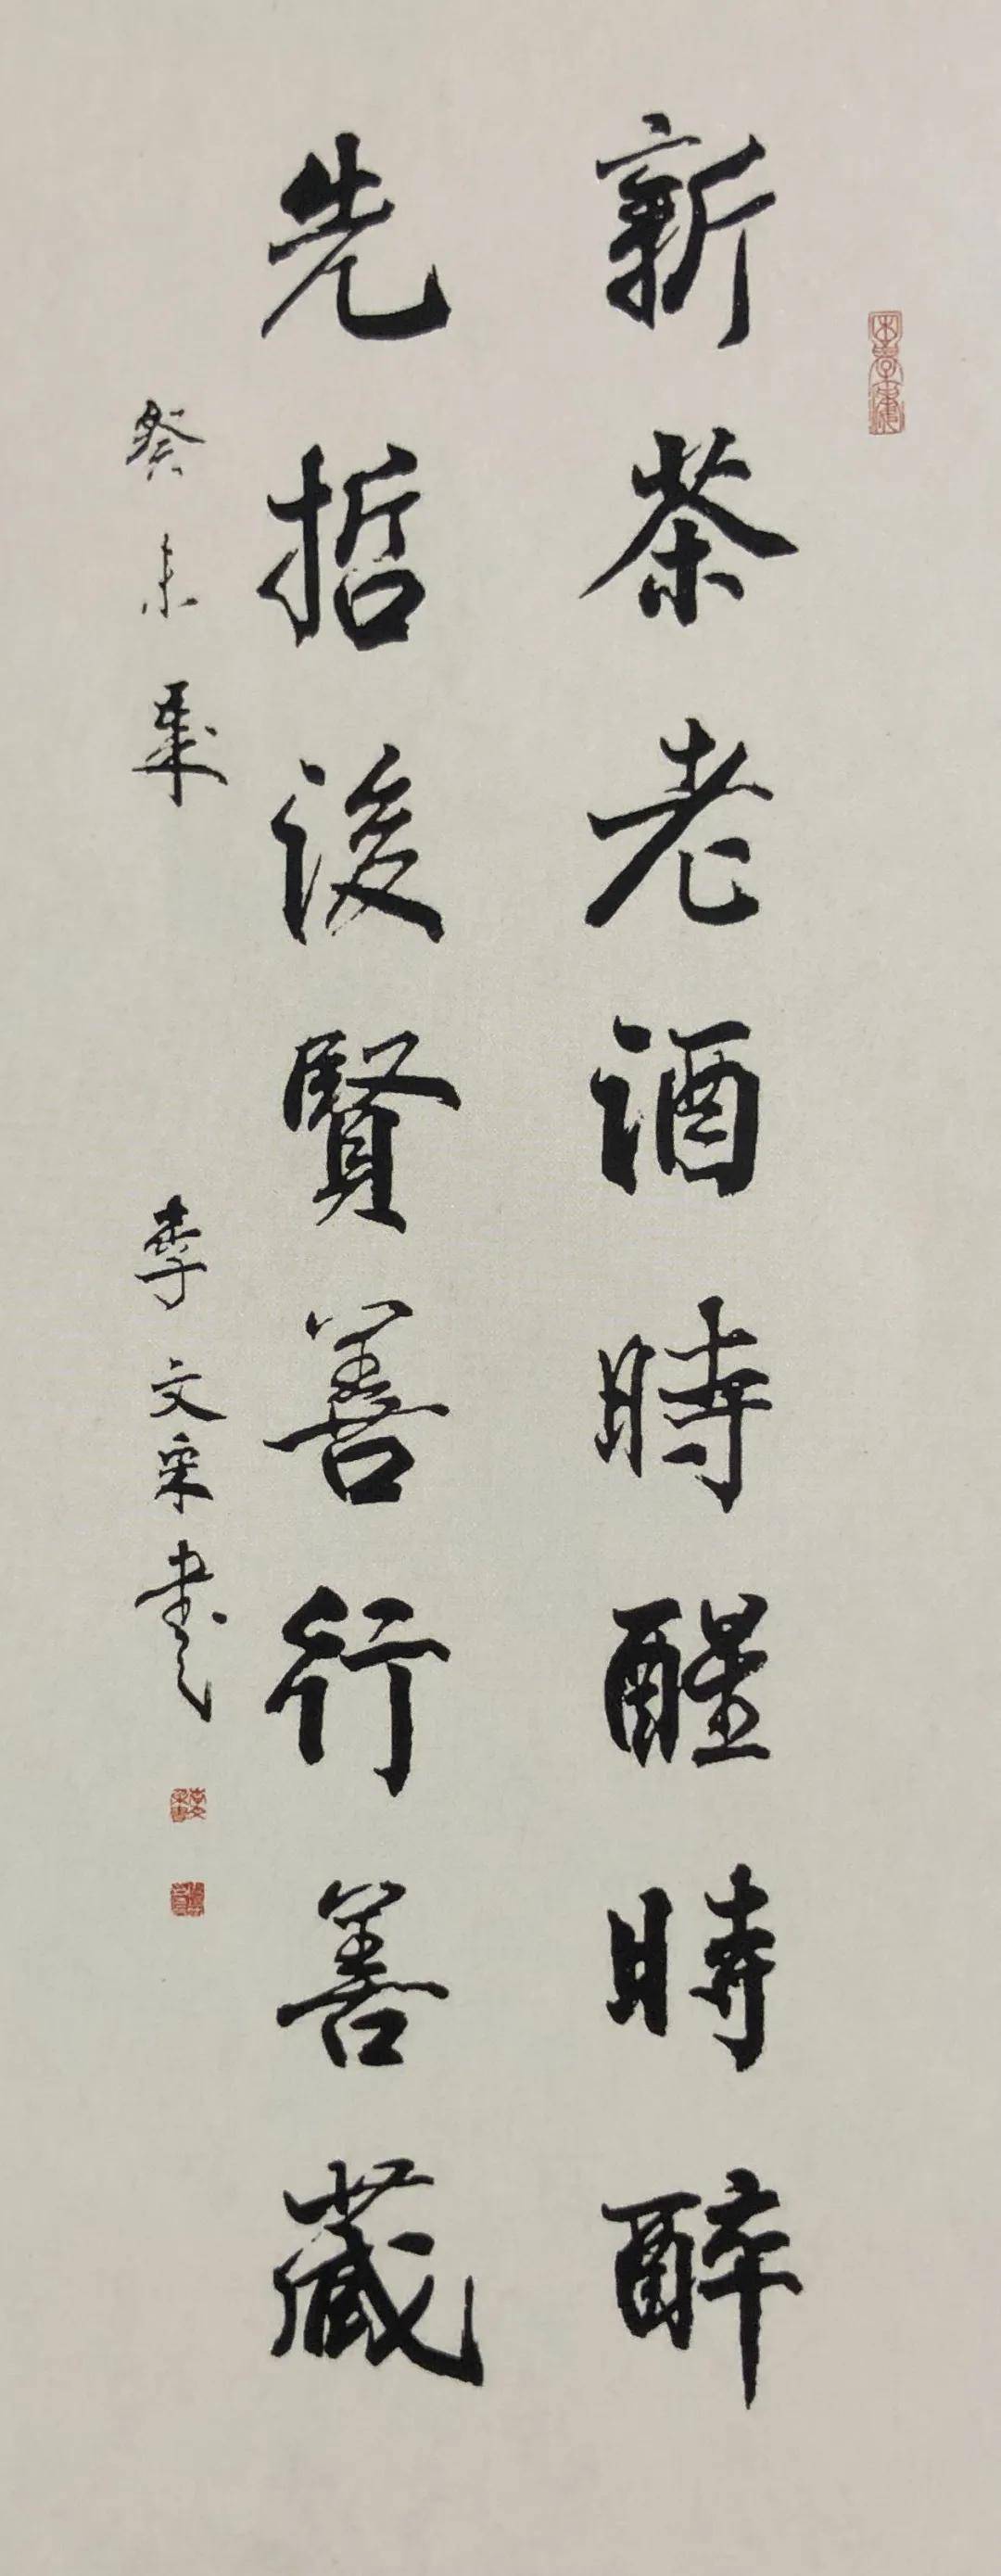 新茶老酒時醒時醉
先哲後賢善行善藏
癸未歲 李文采書